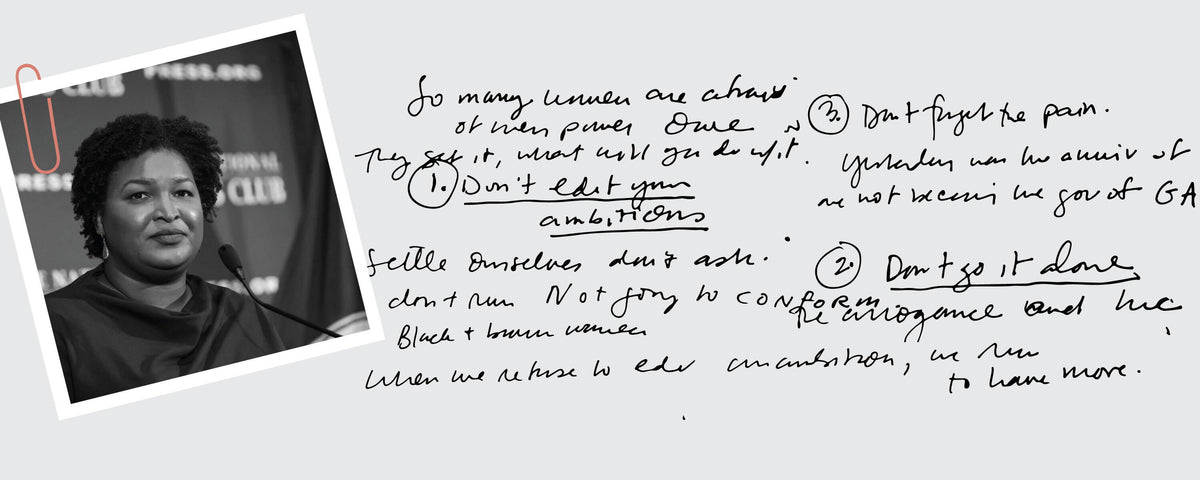 PRESS.ORG
CLUB
NATIONAL
CLUB
So many women are afraid
of men power Once
They get it, what will you do w/it.
1. Don't edit your
ambitions
settle ourselves don't ask.
don't run Not going to CONFORM
Black + brown women
When we refuse to edit our ambition, we run
to have more.
3. Don't forget the pain.
Yesterday was the anniv of
me not becoming the gov of GA
2. Don't go it alone
The arrogance and